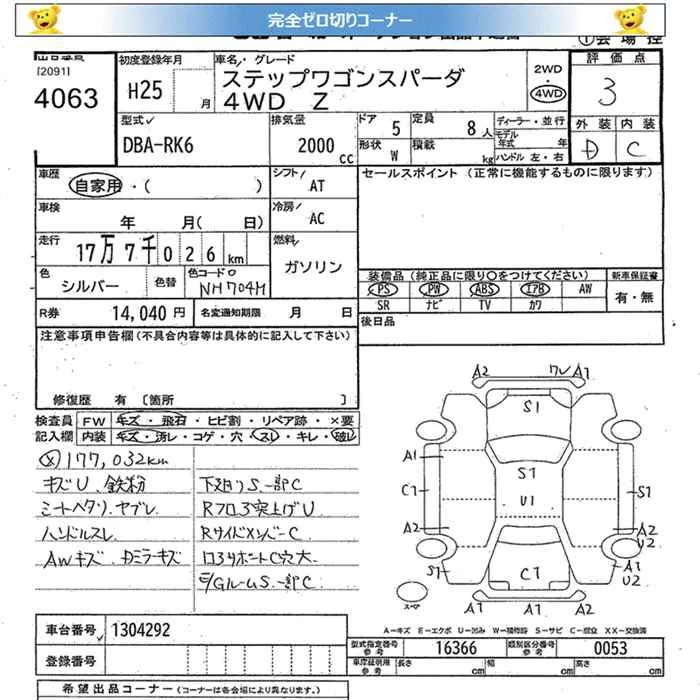 完全ゼロ切りコーナー
[2091]
4063
初度登録年月
H25 月
車名/・グレード
ステップワゴンスパーダ
4WD Z
2WD
・
4WD
評価点
3
外装 内装
D C
型式
DBA-RK6
排気量
2000 CC
ドア 5
形状 W
定員 8 人
積載 kg
ディーラー・並行
モデル年式 年
ハンドル 左・右
車歴
自家用・( )
シフト/ AT
車検
年 月( 日)
冷房/ AC
走行
17万7千026 km
燃料/ ガソリン
色 シルバー 色替
色コードNo
NH704M
R券 14,040 円
名変通知期限 月 日
セールスポイント (正常に機能するものに限ります)
装備品 (純正品に限り○をつけてください) 新車保証書
PS PW ABS エアB AW
SR ナビ TV カワ
有・無
後日品
注意事項申告欄(不具合内容等は具体的に記入して下さい)
修復歴 有 [箇所 ]
検査員記入欄
FW キズ・飛石・ヒビ割・リペア跡・×要
内装 キズ・汚レ・コゲ・穴・スレ・キレ・破レ
177,032km
キズU 鉄粉
シートヘタリ、ヤブレ
ハンドルスレ
AWキズ
下廻りS一部C
Rフロア突上げU
RサイドメンバーC
コアサポートC穴大
E/GルームS一部C
A2 ワレ A1
S1
A1
C1
A2
S1
S1
U1
C1
S1
A2
U2
A1
U2
A1 A1 A2
スペア
A―キズ E―エクボ U―凹み W―補修跡 S―サビ C―腐食 XX―交換済
車台番号 1304292
登録番号
型式指定番号 参考 16366
類別区分番号 参考 0053
車庫証明用 参考 長さ cm 幅 cm 高さ cm
希望出品コーナー(コーナーは各会場により異なります。)